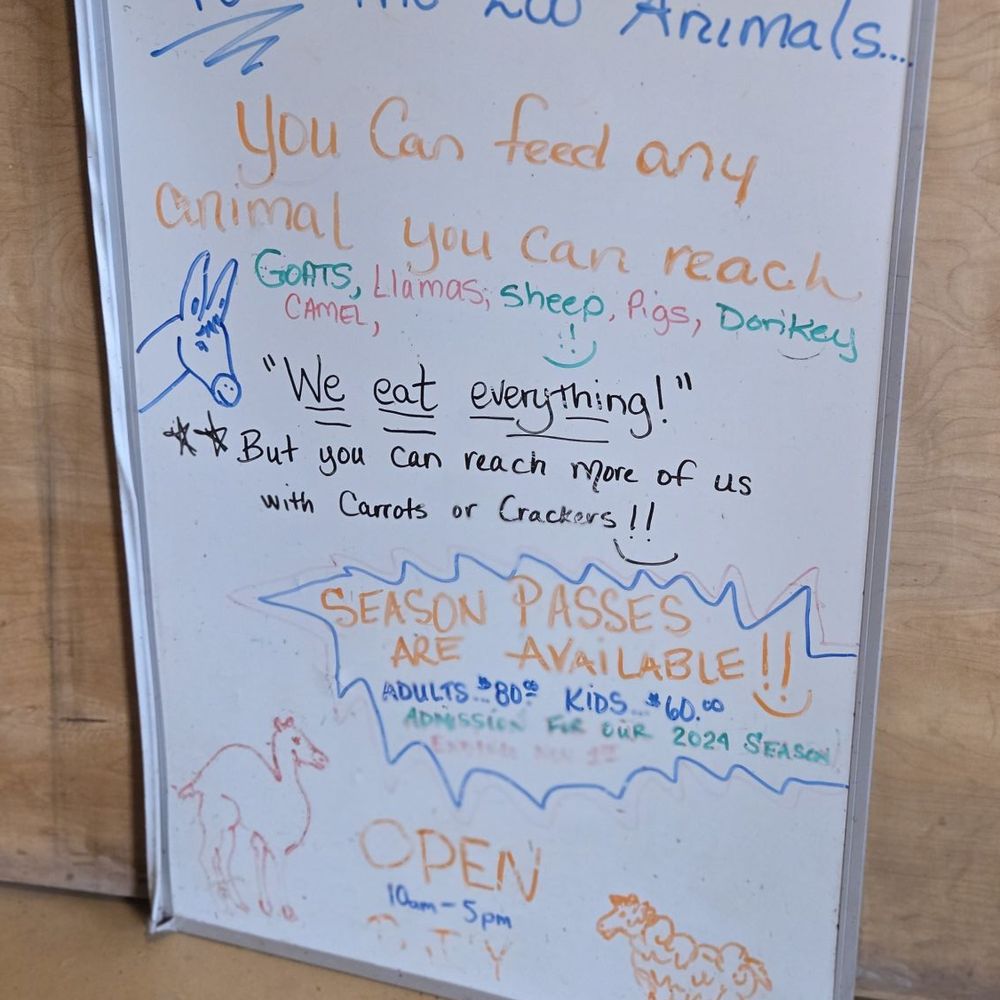 The Zoo Animals....
You Can feed any
animal you can reach
GOATS, Llamas, Sheep, Pigs, Donkey
CAMEL,
"We eat everything!"
** But you can reach more of us
with Carrots or Crackers!!
SEASON PASSES
ARE AVAILABLE!!
ADULTS..$80.00 KIDS...$60.00
ADMISSION FOR OUR 2024 SEASON
OPEN
10am-5pm